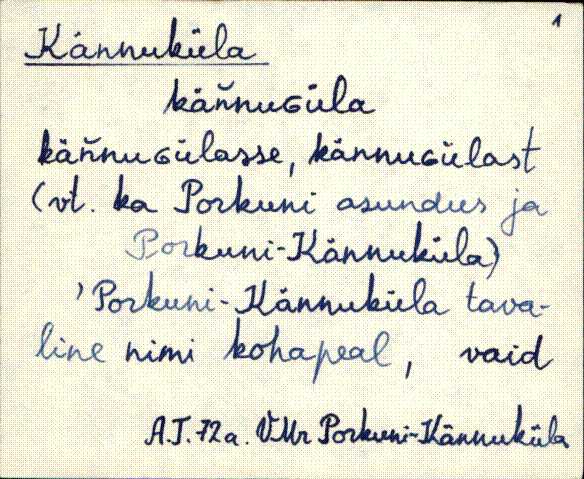 1
Kännuküla
käňnuɢüla
käňnuɢülasse, kännuɢülast
(vt. ka Porkuni asundus ja
Porkuni-Kännuküla)
'Porkuni-Kännuküla tava-
line nimi kohapeal, vaid
A.T. 72 a. VMr Porkuni-Kännuküla